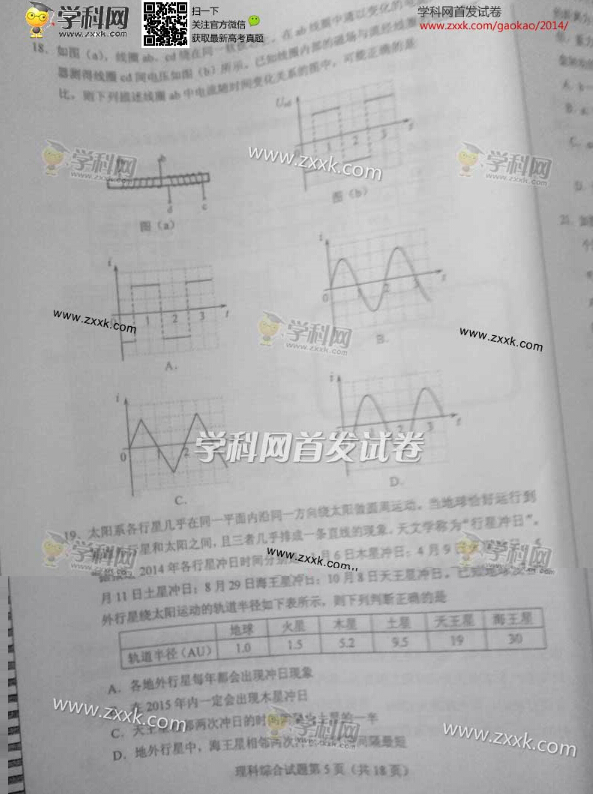 学科网
www.zxxk.com
扫一扫
关注官方微信
获取最新高考真题
学科网首发试卷
www.zxxk.com/gaokao/2014/
18. 如图(a),线圈ab、cd绕在同一 在ab线圈中通以变化的
器测得线圈cd间电压如图(b)所示。已知线圈内部的磁场与流经线圈
比,则下列描述线圈ab中电流随时间变化关系的图中,可能正确的是
图(a)
图(b)
学科网
www.zxxk.com
www.zxxk.com
A.
学科网
B.
www.zxxk.com
学科网首发试卷
C.
D.
19. 太阳系各行星几乎在同一平面内沿同一方向绕太阳做圆周运动。当地球恰好运行到
星和太阳之间,且三者几乎排成一条直线的现象,天文学称为“行星冲日”。
2014年各行星冲日时间分 月6日木星冲日;4月9日
月11日土星冲日;8月29日海王星冲日;10月8日天王星冲日。已知地球
外行星绕太阳运动的轨道半径如下表所示,则下列判断正确的是
地球 火星 木星 土星 天王星 海王星
轨道半径(AU) 1.0 1.5 5.2 9.5 19 30
A. 各地外行星每年都会出现冲日现象
B. 在2015年内一定会出现木星冲日
C. 天王星 两次冲日的时间 土星的一半
D. 地外行星中,海王星相邻两次 间隔最短
理科综合试题第5页(共18页)
学科网
www.zxxk.com
www.zxxk.com
学科网
www.zxxk.com